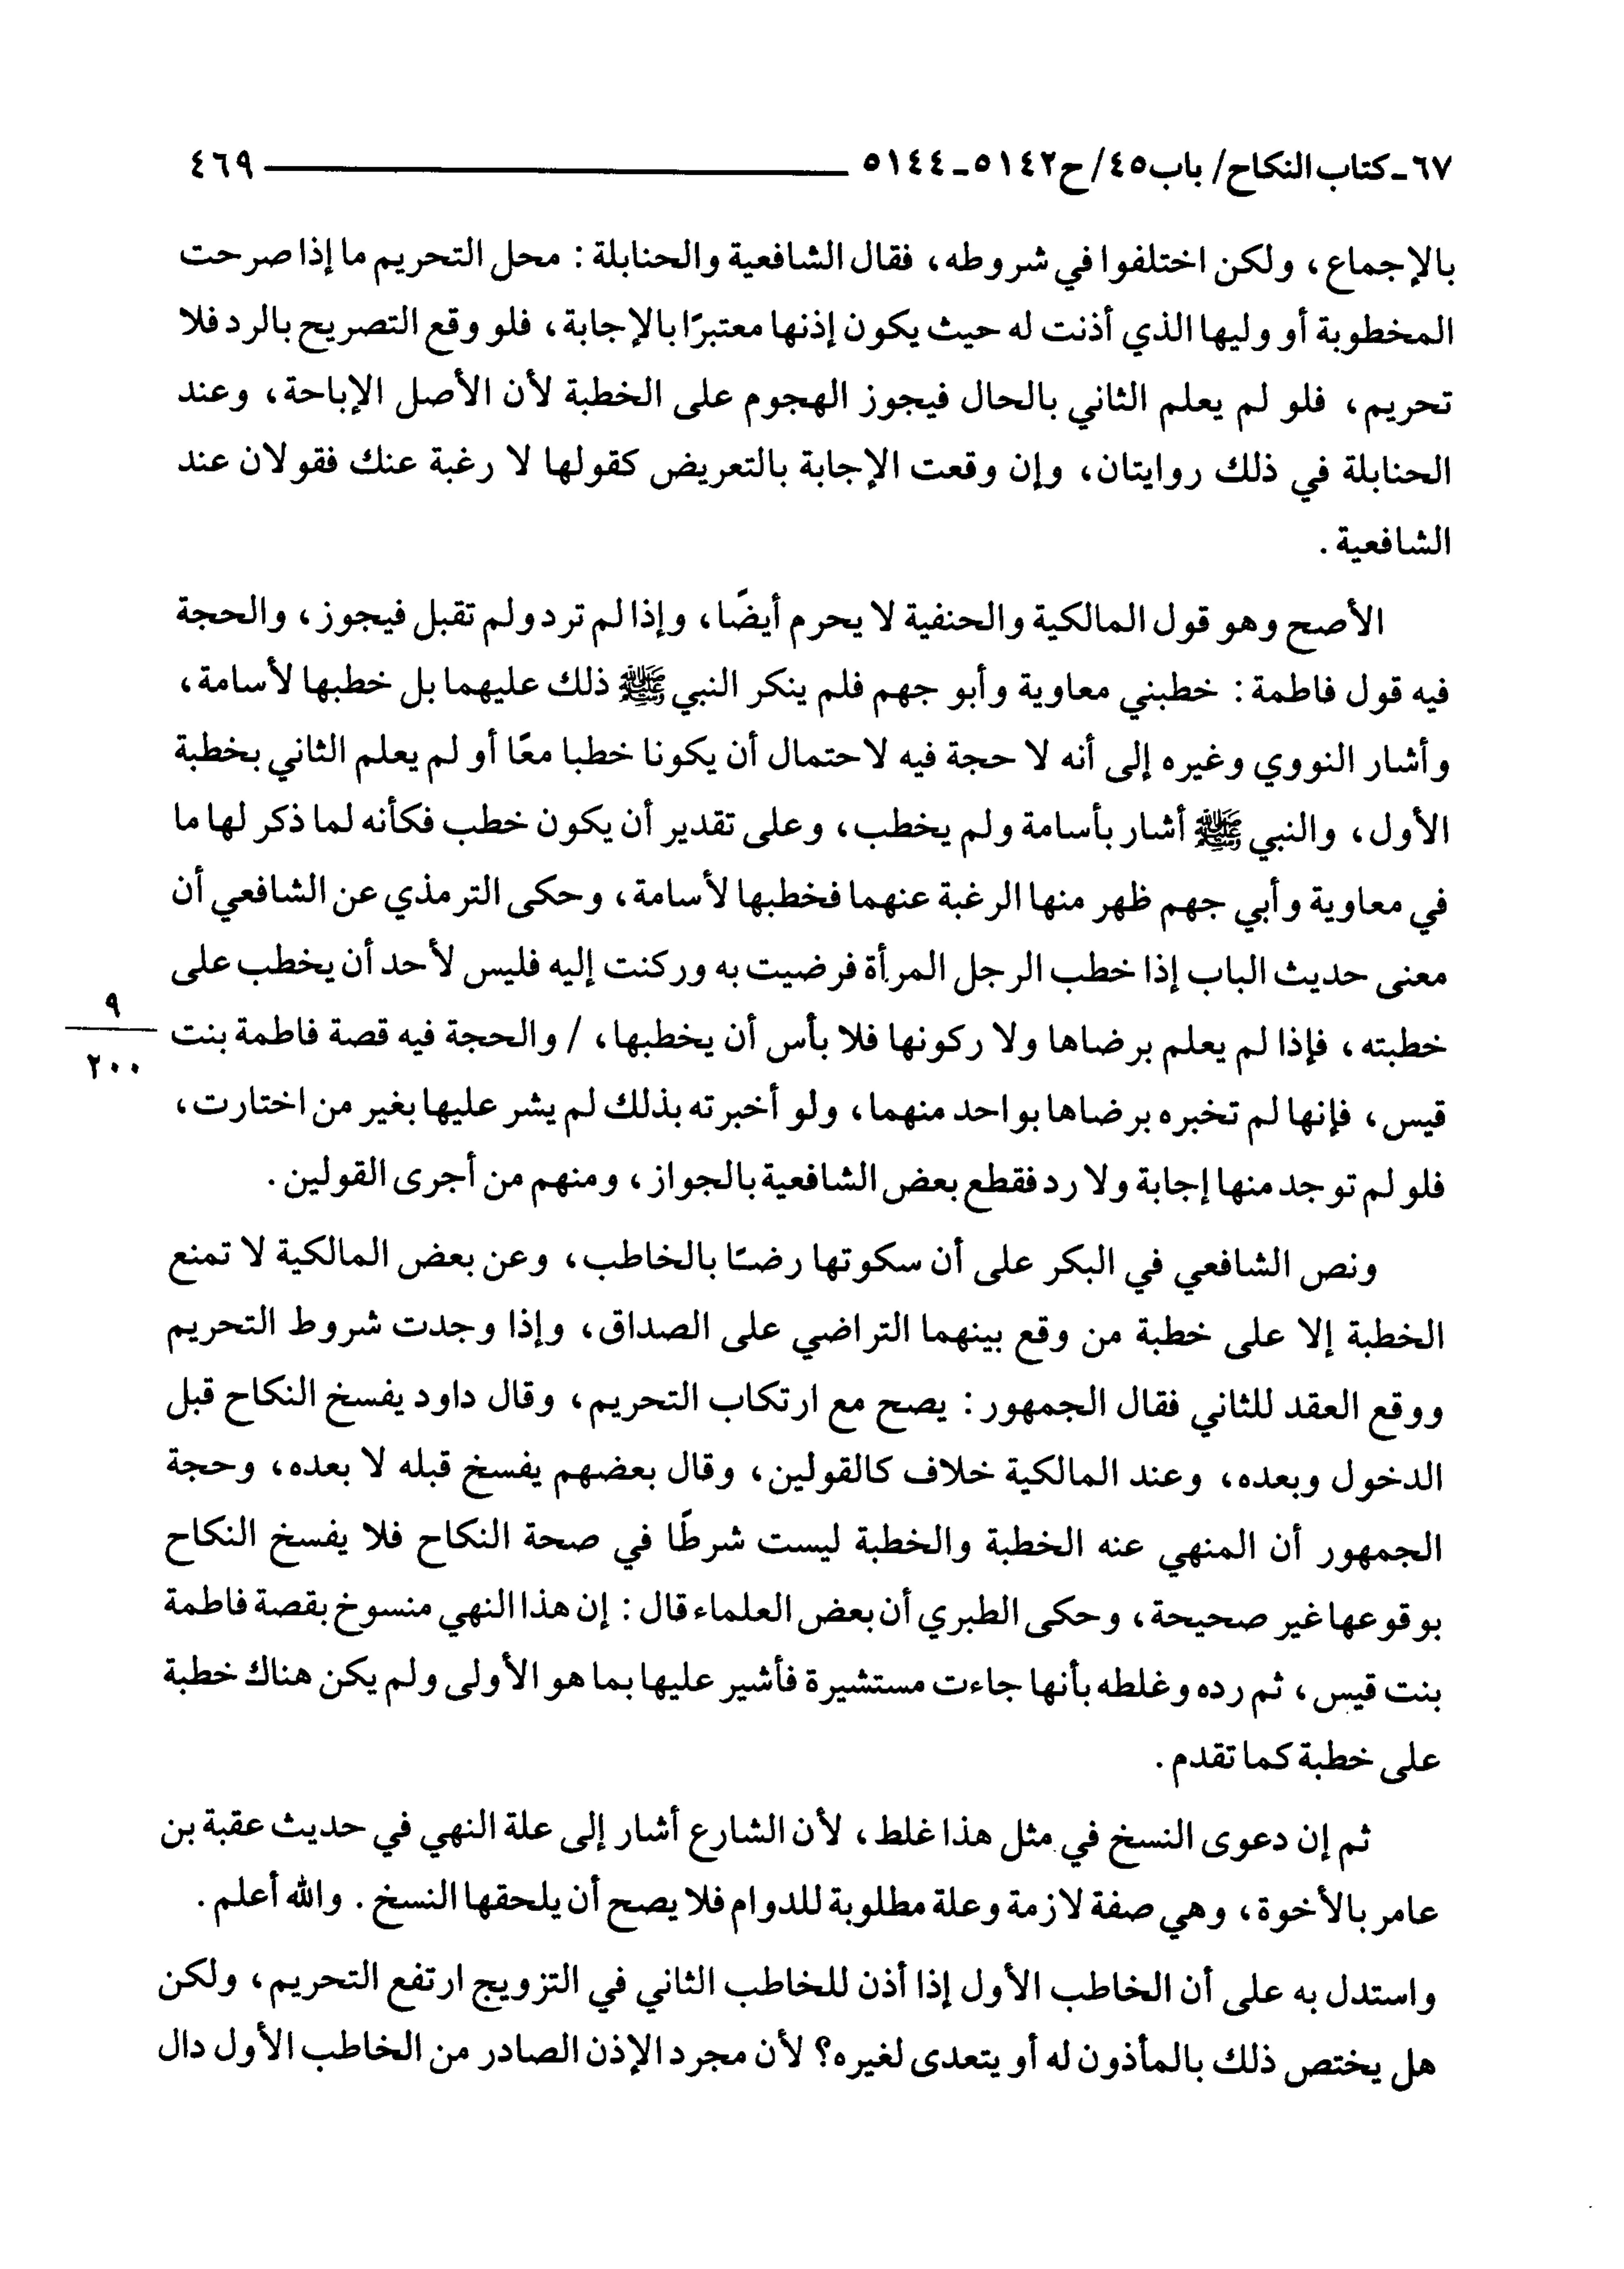 ٦٧-كتاب النكاح/ باب٤٥/ ح٥١٤٢-٥١٤٤ ٤٦٩
بالإجماع، ولكن اختلفوا في شروطه، فقال الشافعية والحنابلة: محل التحريم ما إذا صرحت
المخطوبة أو وليها الذي أذنت له حيث يكون إذنها معتبرًا بالإجابة، فلو وقع التصريح بالرد فلا
تحريم، فلو لم يعلم الثاني بالحال فيجوز الهجوم على الخطبة لأن الأصل الإباحة، وعند
الحنابلة في ذلك روايتان، وإن وقعت الإجابة بالتعريض كقولها لا رغبة عنك فقولان عند
الشافعية.
الأصح وهو قول المالكية والحنفية لا يحرم أيضًا، وإذا لم ترد ولم تقبل فيجوز، والحجة
فيه قول فاطمة: خطبني معاوية وأبو جهم فلم ينكر النبي ﷺ ذلك عليهما بل خطبها لأسامة،
وأشار النووي وغيره إلى أنه لا حجة فيه لاحتمال أن يكونا خطبا معًا أو لم يعلم الثاني بخطبة
الأول، والنبي ﷺ أشار بأسامة ولم يخطب، وعلى تقدير أن يكون خطب فكأنه لما ذكر لها ما
في معاوية وأبي جهم ظهر منها الرغبة عنهما فخطبها لأسامة، وحكى الترمذي عن الشافعي أن
معنى حديث الباب إذا خطب الرجل المرأة فرضيت به وركنت إليه فليس لأحد أن يخطب على
خطبته، فإذا لم يعلم برضاها ولا ركونها فلا بأس أن يخطبها، / والحجة فيه قصة فاطمة بنت
٩
٢٠٠
قيس، فإنها لم تخبره برضاها بواحد منهما، ولو أخبرته بذلك لم يشر عليها بغير من اختارت،
فلو لم توجد منها إجابة ولا رد فقطع بعض الشافعية بالجواز، ومنهم من أجرى القولين.
ونص الشافعي في البكر على أن سكوتها رضًا بالخاطب، وعن بعض المالكية لا تمنع
الخطبة إلا على خطبة من وقع بينهما التراضي على الصداق، وإذا وجدت شروط التحريم
ووقع العقد للثاني فقال الجمهور: يصح مع ارتكاب التحريم، وقال داود يفسخ النكاح قبل
الدخول وبعده، وعند المالكية خلاف كالقولين، وقال بعضهم يفسخ قبله لا بعده، وحجة
الجمهور أن المنهي عنه الخطبة والخطبة ليست شرطًا في صحة النكاح فلا يفسخ النكاح
بوقوعها غير صحيحة، وحكى الطبري أن بعض العلماء قال: إن هذا النهي منسوخ بقصة فاطمة
بنت قيس، ثم رده وغلطه بأنها جاءت مستشيرة فأشير عليها بما هو الأولى ولم يكن هناك خطبة
على خطبة كما تقدم.
ثم إن دعوى النسخ في مثل هذا غلط، لأن الشارع أشار إلى علة النهي في حديث عقبة بن
عامر بالأخوة، وهي صفة لازمة وعلة مطلوبة للدوام فلا يصح أن يلحقها النسخ. والله أعلم.
واستدل به على أن الخاطب الأول إذا أذن للخاطب الثاني في التزويج ارتفع التحريم، ولكن
هل يختص ذلك بالمأذون له أو يتعدى لغيره؟ لأن مجرد الإذن الصادر من الخاطب الأول دال